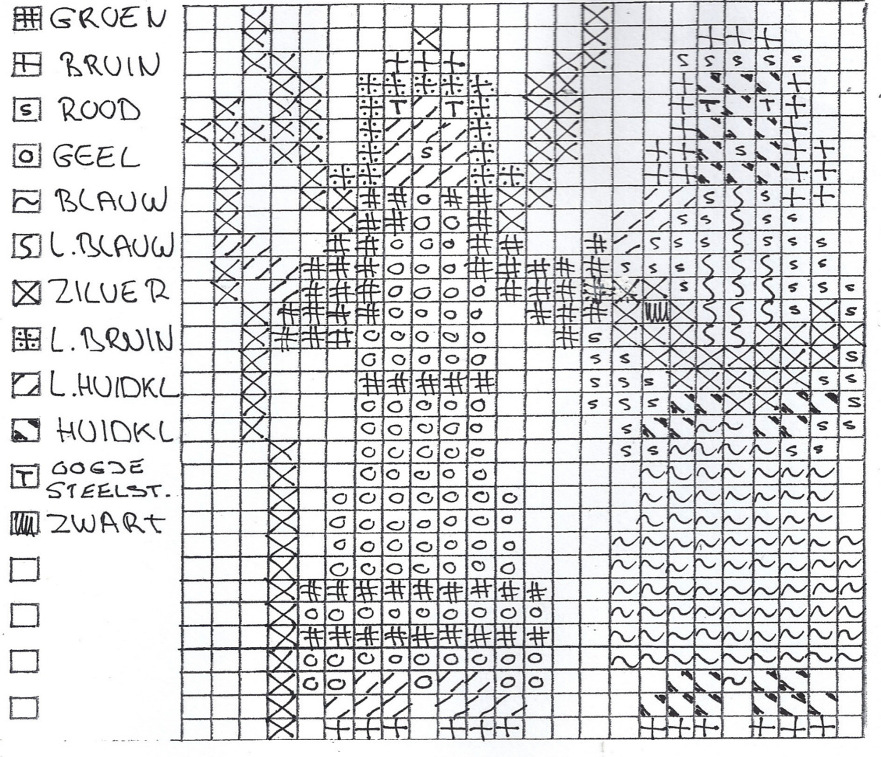 GROEN
BRUIN
ROOD
GEEL
BLAUW
L.BLAUW
ZILVER
L.BRUIN
L.HUIDKL
HUIDKL
OOGJE
STEELST.
ZWART